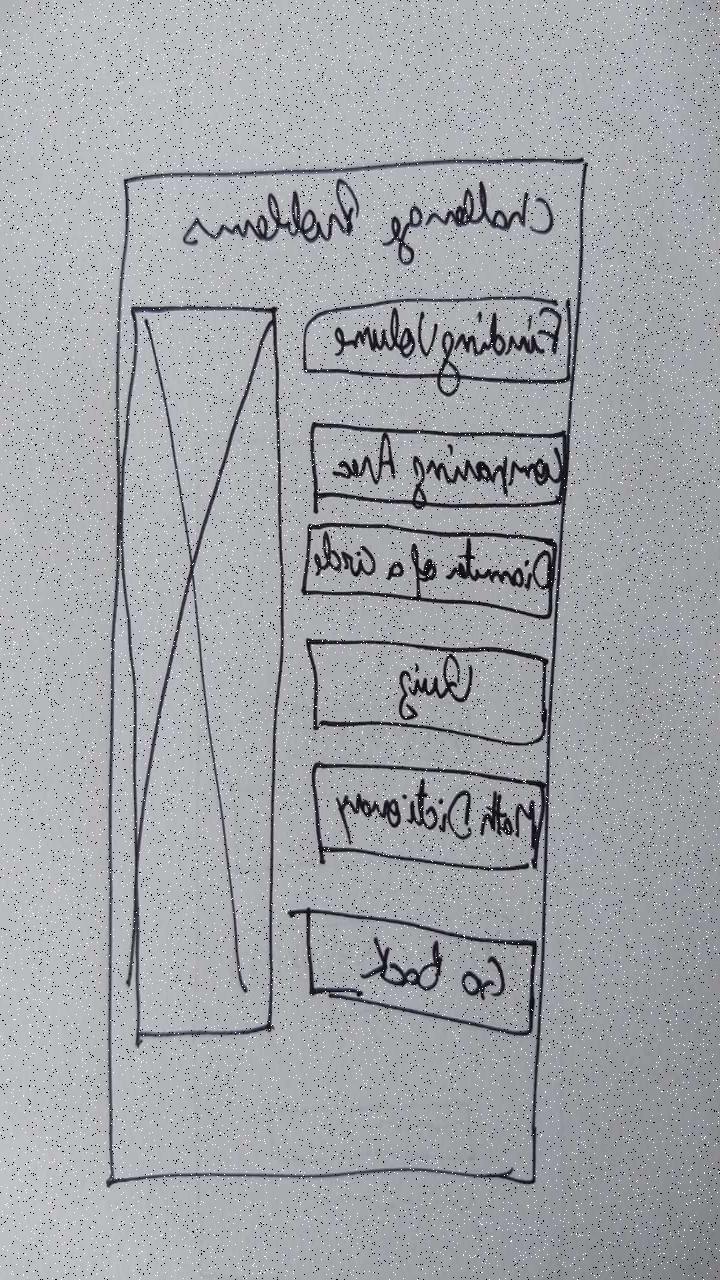 Challenge Problems
Finding Volume
Comparing Area
Diameter of a Circle
Quiz
Math Dictionary
Go back